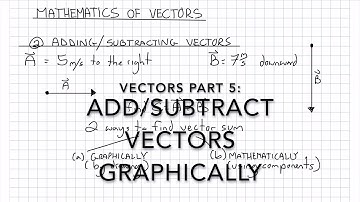 MATHEMATICS OF VECTORS
② ADDING/SUBTRACTING VECTORS
A⃗ = 5 m/s to the right
B⃗ = 7 m/s downward
A⃗
B⃗
VECTORS PART 5:
ADD/SUBTRACT
VECTORS
GRAPHICALLY
2 ways to find vector sum
(a) GRAPHICALLY
(b) MATHEMATICALLY
(using components)